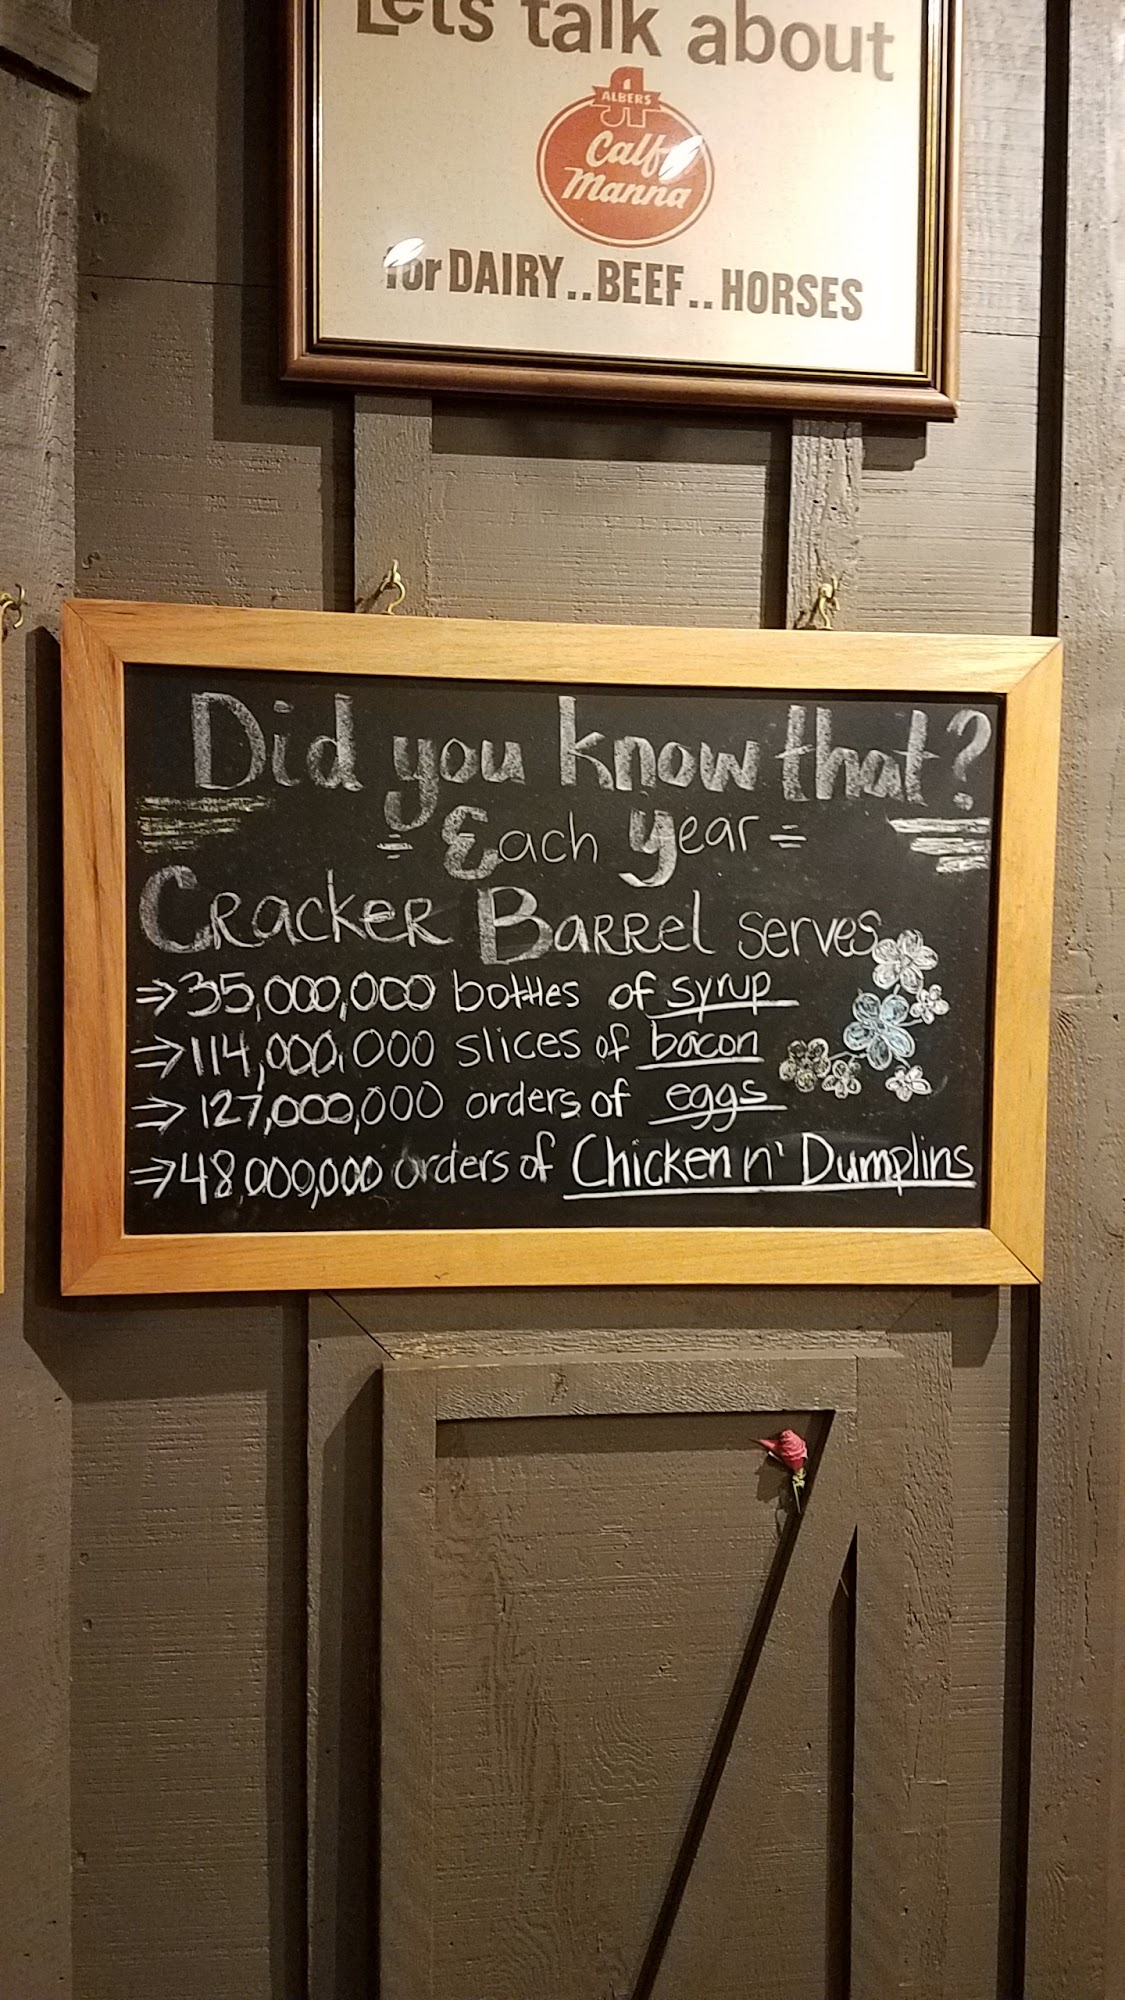 Lets talk about
ALBERS
Calf
Manna
for DAIRY..BEEF..HORSES
Did you know that?
= Each Year =
Cracker Barrel serves
⇒35,000,000 bottles of syrup
⇒114,000,000 slices of bacon
⇒127,000,000 orders of eggs
⇒48,000,000 orders of Chicken n' Dumplins